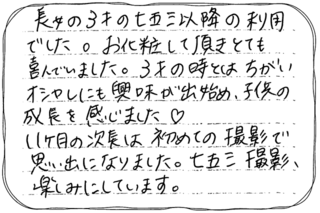 長女の3才の七五三以降の利用
でした。お化粧して頂きとても
喜んでいました。3才の時とはちがい
オシャレにも興味が出始め、子供の
成長を感じました♡
11ヶ月の次長は初めての撮影で
思い出になりました。七五三撮影、
楽しみにしています。